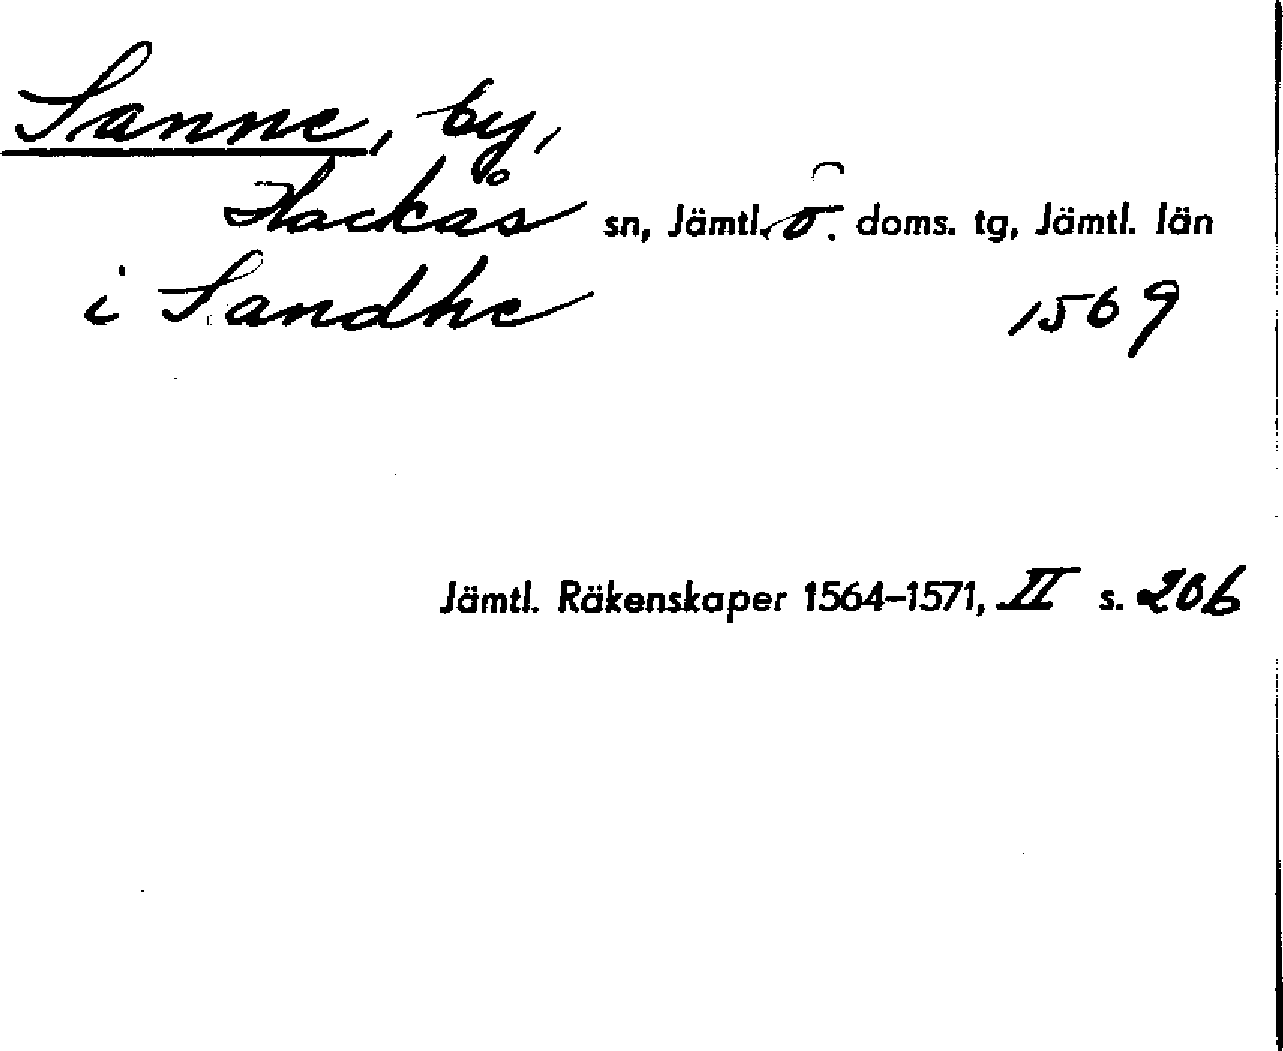 Sanne, by,
Hackås sn, Jämtl. ö. doms. tg, Jämtl. län
i Sandhe 1569
Jämtl. Räkenskaper 1564–1571, II s. 206